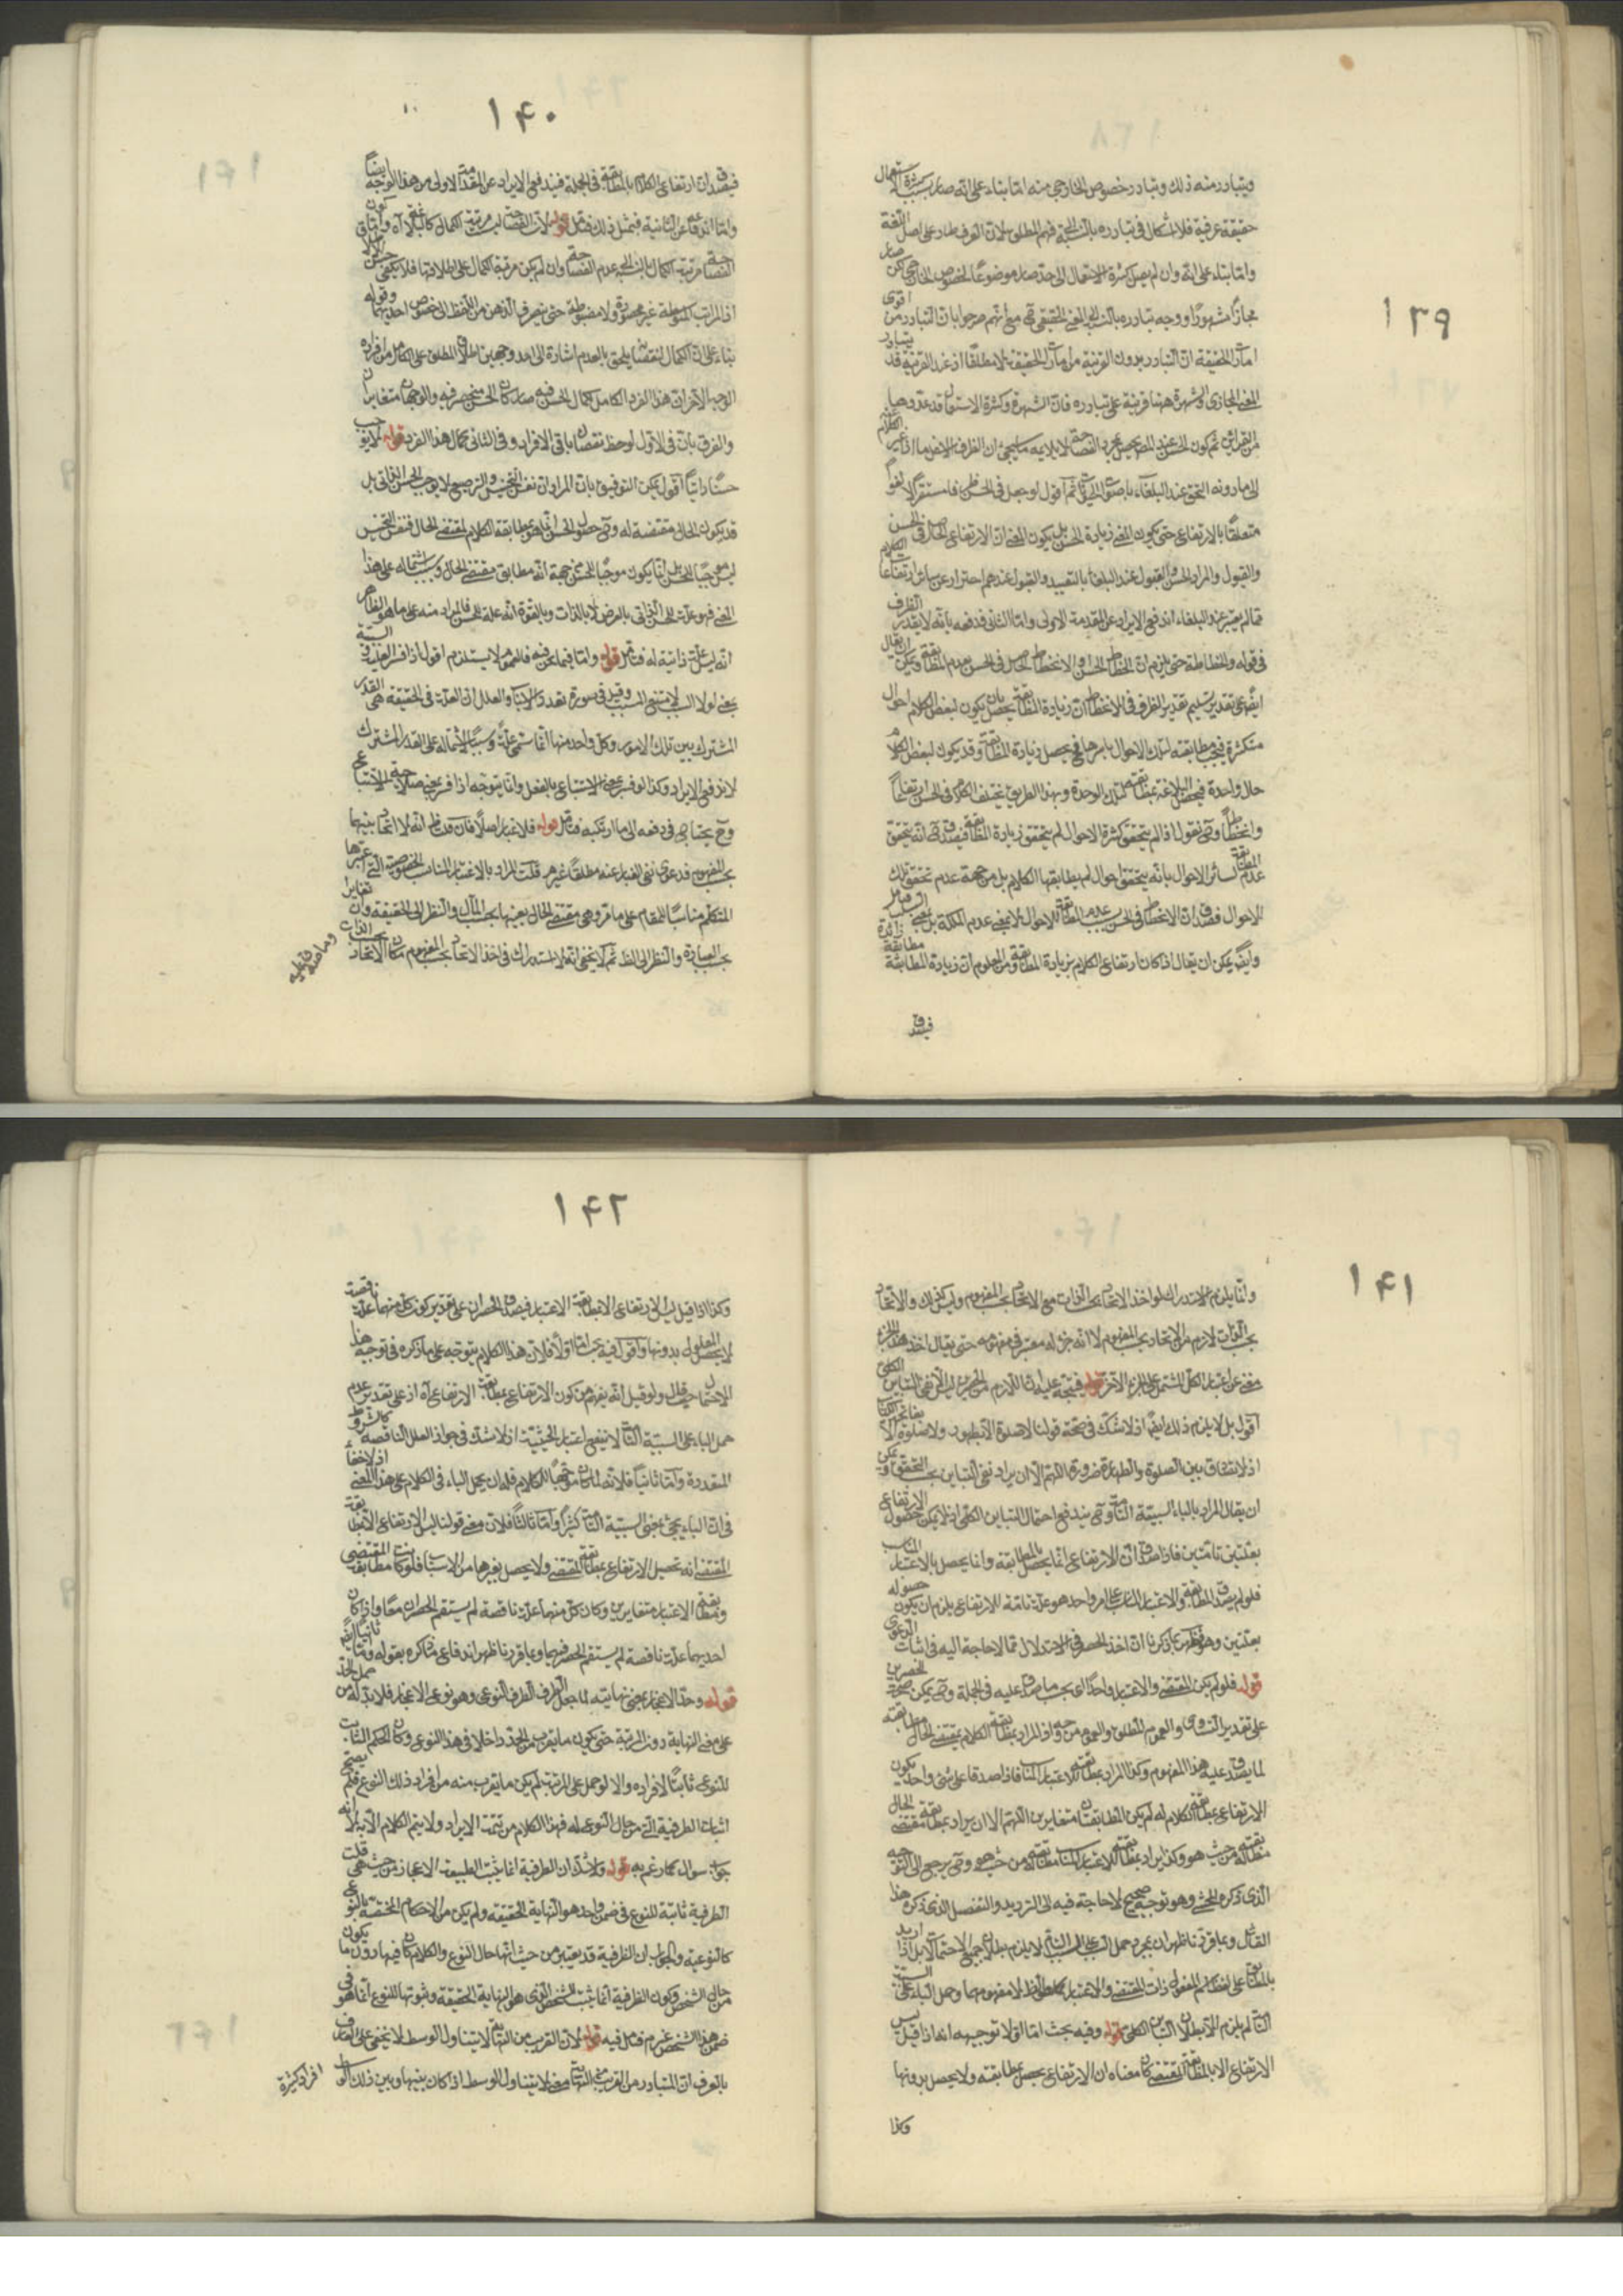 ١٣٩
ويتبادر منه ذلك وتبادر خصوص الخارجي منه اما بناء على انه صار بسبب كثرة استعمال
حقيقة عرفية فلا اشكال في تبادره بالنسبة فهم المطلق لان العرف طار على اصل اللغة
واما بناء على انه وان لم يصل كثرة الاستعمال الى حد صار موضوعا لخصوص الخارجي لكن صار
مجازا مشهورا ووجه تبادره بالنسبة الى المعنى الحقيقي مع انهم صرحوا بان التبادر من اقوى
امارات الحقيقة ان التبادر بدون القرينة من امارات الحقيقة لا مطلقا اذ عند القرينة قد يتبادر
المعنى المجازي والشهرة ههنا قرينة على تبادره فان الشهرة وكثرة الاستعمال قد عدوهما
من القرائن ثم كون الحسن عند المحصل بمجرد الفصاحة لا يلايمه ما سيجئ ان الطرف الاسفل ما اذا غير الكلام عنه
الى ما دونه التحق عند البلغاء باصوات الحيوانات ثم اقول لو جعل في الحسن ظرفا مستقرا لا لغوا
متعلقا بالارتفاع حتى يكون المعنى زيادة الحسن بل يكون المعنى ان الارتفاع الحاصل في الحسن
والقبول والمراد الحسن والقبول عند البلغاء بالتقييد والقبول عندهم احتراز عن سائر ارتفاعات الكلام
مما لم يعتبر عند البلغاء اندفع الايراد عن المقدمة الاولى واما الثاني فدفعه بانه لا يقدر الظرف
في قوله وانحطاطه حتى يلزم ان انحطاط الحسن والانحطاط الحاصل في الحسن بعدم المطابقة ويمكن ان يقال
ايضا على تقدير تسليم تقدير الظرف في الانحطاط ان زيادة المطابقة يحصل بان يكون لبعض الكلام احوال
متكثرة فيجب مطابقته لتلك الاحوال باسرها فيحصل زيادة المطابقة وقد يكون لبعض الكلام
حال واحدة فيحصل البلاغة بمطابقته لتلك الوحدة وبهذا الطريق يختلف الكلام في الحسن ارتفاعا
وانحطاطا وح نقول اذا لم يتحقق كثرة الاحوال لم يتحقق زيادة المطابقة فيصدق ح انه يتحقق
عدم المطابقة لسائر الاحوال بانه يتحقق احوال لم يطابقها الكلام بل من جهة عدم تحقق تلك
الاحوال فصدق ان الانحطاط في الحسن بسبب عدم المطابقة للاحوال لا بمعنى عدم الملكة بل بمعنى السلب فتامل
وايضا يمكن ان يقال اذا كان ارتفاع الكلام بزيادة المطابقة ومن المعلوم ان زيادة المطابقة مطابقة زائدة
فيصدق
١٤٠
فيصدق ان ارتفاع الكلام بالمطابقة في الجملة فيندفع الايراد عن المقدمة الاولى من هذا الوجه ايضا
واما اندفاعه عن الثانية فبمثل ذلك فتامل قوله لان الفصاحة ليست مرتبة الكمال كالبلاغة آه واتفاق كون
الفصاحة مرتبة الكمال بالنسبة الى عدم الفصاحة وان لم يكن مرتبة الكمال على اطلاقها فلا يكفي
اذ المراتب المتوسطة غير محصورة ولا مضبوطة حتى ينصرف الذهن من اللفظ الى خصوص احديهما وقوله
بناء على ان الكمال لنقصانه يلحق بالعدم اشارة الى احد وجهين اطلاق المطلق على الكامل من افراده
الوجه الاخر ان هذا الفرد الكامل لكمال الحسن فيه صار كان الحسن منحصر فيه والوجهان متغايران
والفرق بان في الاول لوحظ نقصان باقي الافراد وفي الثاني كمال هذا الفرد قوله لا يوجب
حسنا ذاتيا اقول يمكن التوفيق بان المراد ان نفس التجنيس والترصيع لا يوجب الحسن الذاتي بل
قد يكون الحال مقتضية له وح حصول الحسن انما هو بمطابقة الكلام لمقتضى الحال فنفس التجنيس
ليس موجبا للحسن بل انما يكون موجبا للحسن من جهة انه مطابق مقتضى الحال وبسبب اشتماله على هذا
المعنى فهو علة للحسن الذاتي بالعرض لا بالذات وبالقوة انه علة للحسن فالمراد منه على ما هو الظاهر
انه ليس علة ذاتية له فتامل قوله واما فيما نحن فيه فالعموم لا يستلزم اقول اذا فسر العلية السببية
بمعنى لولا السبب لامتنع المسبب وقيد في صورة تعدد الاسباب والعلل ان العلة في الحقيقة هي القدر
المشترك بين تلك الامور وكل واحد منها انما سمي علة وسببا لاشتماله على القدر المشترك
لاندفع الايراد وكذا لو فسر بمعنى الاستتباع بالفعل وانما يتوجه اذا فسر بمعنى صلاحية الاستتباع
وح يحتاج في دفعه الى ما ارتكبه فتامل قوله فلا اعتبار اصلا فان قلت ظاهر انه لا اتحاد بينهما
بحسب المفهوم فدعوى نفي الغبار عنه مطلقا غير مر قلت المراد بالاعتبار المناسب الخصوصية التي اعتبرها
المتكلم مناسبا للمقام على ما مر وهي مقتضى الحال بعينها بحسب المآل والنظر الى الحقيقة وان تغايرا
بحسب العبارة والنظر الى اللفظ ثم لا يخفى انه لا استدراك في اخذ الاتحاد بحسب المفهوم مكان الاتحاد بحسب الذات
١٤١
وانما يلزم الاستدراك لو اخذ الاتحاد بحسب الذات مع الاتحاد بحسب المفهوم وليس كذلك والاتحاد
بحسب الذات لازم من الاتحاد بحسب المفهوم لا انه جزء له معتبر في مفهومه حتى يقال اخذ هذا الجزء
مغني عن اعتبار الكل المشتمل على الجزء الاخر قوله فيتجه عليه ان اللازم من الحصرين ليس الا نفي التباين الكلي
اقول بل لا يلزم ذلك ايضا اذ لا شك في صحة قولنا لا صلوة الا بطهور ولا صلوة الا بفاتحة الكتاب
اذ لا تصادق بين الصلوة والطهارة ضرورة اللهم الا ان يراد نفي التباين بحسب التحقق ويمكن
ان يقال المراد بالباء السببية التامة وح يندفع احتمال التباين الكلي اذ لا يمكن حصول الارتفاع
بعلتين تامتين فاذا صدق ان الارتفاع انما يحصل بالمطابقة وانما يحصل بالاعتبار المناسب
فلو لم يصدق المطابقة والاعتبار المناسب على امر واحد هو علة تامة للارتفاع يلزم ان يكون حصوله
بعلتين وهو باطل بما ذكرنا ان اخذ الحصر في الاستدلال مما لا حاجة اليه في اثبات الدعوى
قوله فلو لم يكن المقتضى والاعتبار واحدا اي بحسب ما صدق عليه في الجملة وح يكن صحة الحصرين
على تقدير التساوي والعموم المطلق والعموم من وجه اذ المراد بمطابقة الكلام بمقتضى الحال مطابقته
لما يصدق عليه هذا المفهوم وكذا المراد بمطابقته للاعتبار المناسب فاذا صدقا على شئ واحد يكون
الارتفاع بمطابقة الكلام له لم يكن المطابقتان متغايرين اللهم الا ان يراد بمطابقة مقتضى الحال
مطابقته من حيث هو وكذا يراد بمطابقته للاعتبار المناسب مطابقته من حيث هو وح يرجع الى التوجيه
الذي ذكره المحشي وهو توجيه صحيح لا حاجة فيه الى الترديد والتفصيل الذي ذكره هذا
القائل وبما قررنا ظهر ان بمجرد حمل الباء على السبب التام لا يلزم بطلان جميع الاحتمالات بل اذا اريد
الارتفاع الا بالمطابقة لمقتضى كان معناه ان الارتفاع يحصل بمطابقته ولا يحصل بدونها
وكذا
١٤٢
وكذا اذا قيل ليس الارتفاع الا بمطابقة الاعتبار فيصدق الحصران على تقدير كون كل منهما علة ناقصة
لا يحصل المعلول بدونها واقول فيه بحث اما اولا فلان هذا الكلام يتوجه على ما ذكره في توجيه هذا
الاحتمال حيث قال ولو قيل انه يفهم من كون الارتفاع بمطابقة الارتفاع آه اذ على تقدير عدم
حمل الباء على السببية التامة لا ينبغي اعتبار الحيثية اذ لا شك في جواز العلل الناقصة كالشروط
المتعددة واما ثانيا فلانه لما كان موجها للكلام فله ان يحمل الباء في الكلام على هذا المعنى اذ لا خفاء
في ان الباء يجئ بمعنى السببية التامة كثيرا واما ثالثا فلان معنى قولنا ليس الارتفاع الا بمطابقة
المقتضى انه تحصيل الارتفاع بمطابقة المقتضى ولا يحصل بغيرها من الاسباب فلو كانت مطابقة المقتضى
ومطابقة الاعتبار متغايرين وكان كل منهما علة ناقصة لم يستقم الحصران معا واذا كان
احديهما علة ناقصة لم يستقم الحصر فيهما وبما قررنا ظهر اندفاع ما ذكره بقوله واما ثانيا ايضا
قوله وحد الاعجاز بمعنى نهايته لما جعل الطرف الطرف النوعي وهو نوع الاعجاز فلا بد له من حمل الحد
على معنى النهاية دون المرتبة حتى يكون ما يقرب من الحد داخلا في هذا النوع وكان الحكم الثابت
للنوع ثابتا لافراده والا لو حمل على المرتبة لم يكن ما يقرب منه من افراد ذلك النوع فلم يصح
اثبات الطرفية التي من حال النوع له فهذا الكلام من تتمة الايراد ولا يتم الكلام الا به لا انه
جواب سؤال كما زعم به قوله ولا شك ان الطرفية انما يثبت لطبيعة الاعجاز من حيث هي قلت
الطرفية ثابتة للنوع في ضمن واحد هو النهاية الحقيقة ولم يكن من الاحكام المختصة بالنوع
كالنوعية والجواب ان الطرفية قد يعتبر من حيث انها حال النوع والكلام كان فيها دون ما يكون
من حال الشخص وكون الطرفية انما يثبت للشخص الذي هو النهاية الحقيقة وثبوتها للنوع انما هو في
ضمن هذا الشخص غير مر فتامل فيه قوله لان القريب من النهاية لا يتناول الوسط لا يخفى على العارف
بالعرف ان المتبادر من القريب من النهاية معنى لا يتناول الوسط اذا كان بينها وبين ذلك الوسط افراد كثيرة